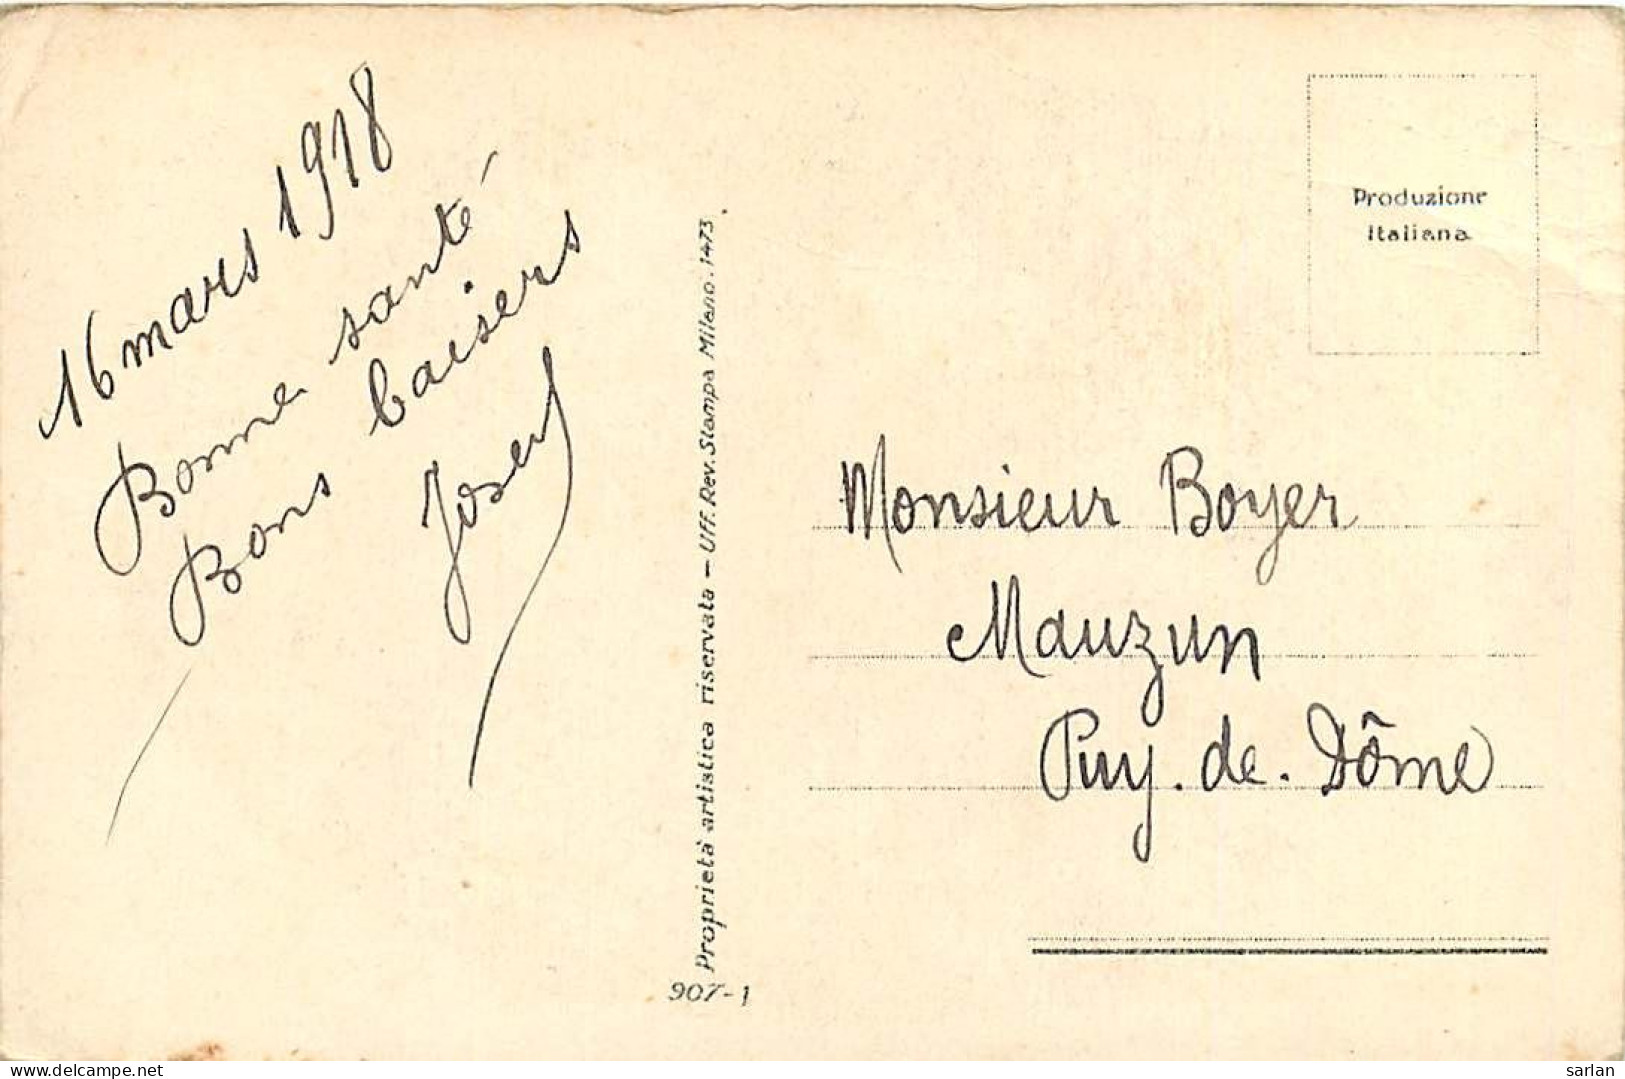 16 mars 1918
Bonne santé
Bons baisers
Joseph
Proprietà artistica riservata - Uff. Rev. Stampa Milano. 1473
907-1
Produzione
Italiana
Monsieur Boyer
Mauzun
Puy. de. Dôme
www.delcampe.net
sarlan